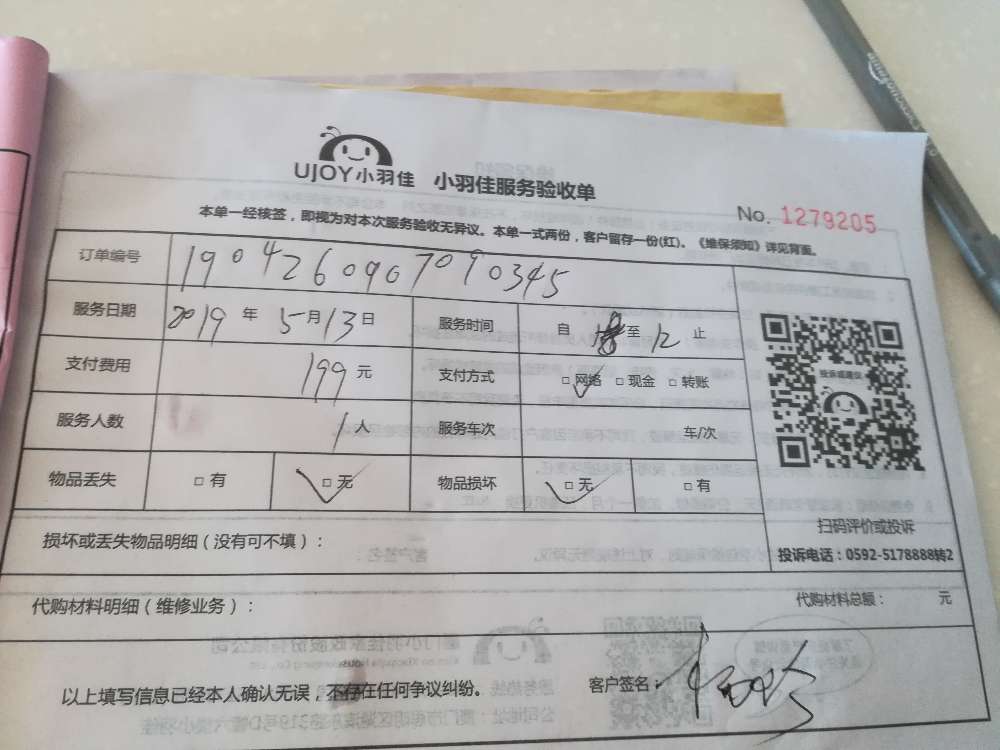 UJOY小羽佳 小羽佳服务验收单
No. 1279205
本单一经核签，即视为对本次服务验收无异议。本单一式两份，客户留存一份(红)。《维保须知》详见背面。
订单编号 1904260907090345
服务日期 2019 年 5月13日 服务时间 自 至 12 止
支付费用 199元 支付方式 □网络 □现金 □转账
服务人数 1人 服务车次 车/次
物品丢失 □有 □无 物品损坏 □无 □有
投诉或建议
扫码评价或投诉
投诉电话：0592-5178888转2
损坏或丢失物品明细（没有可不填）：
代购材料明细（维修业务）： 代购材料总额： 元
以上填写信息已经本人确认无误，不存在任何争议纠纷。 客户签名：